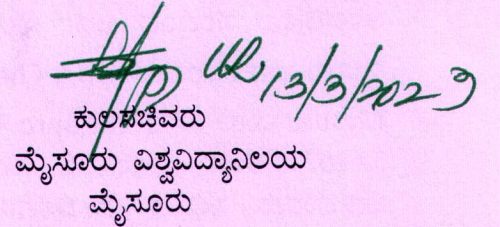 13/3/2023
ಕುಲಸಚಿವರು
ಮೈಸೂರು ವಿಶ್ವವಿದ್ಯಾನಿಲಯ
ಮೈಸೂರು